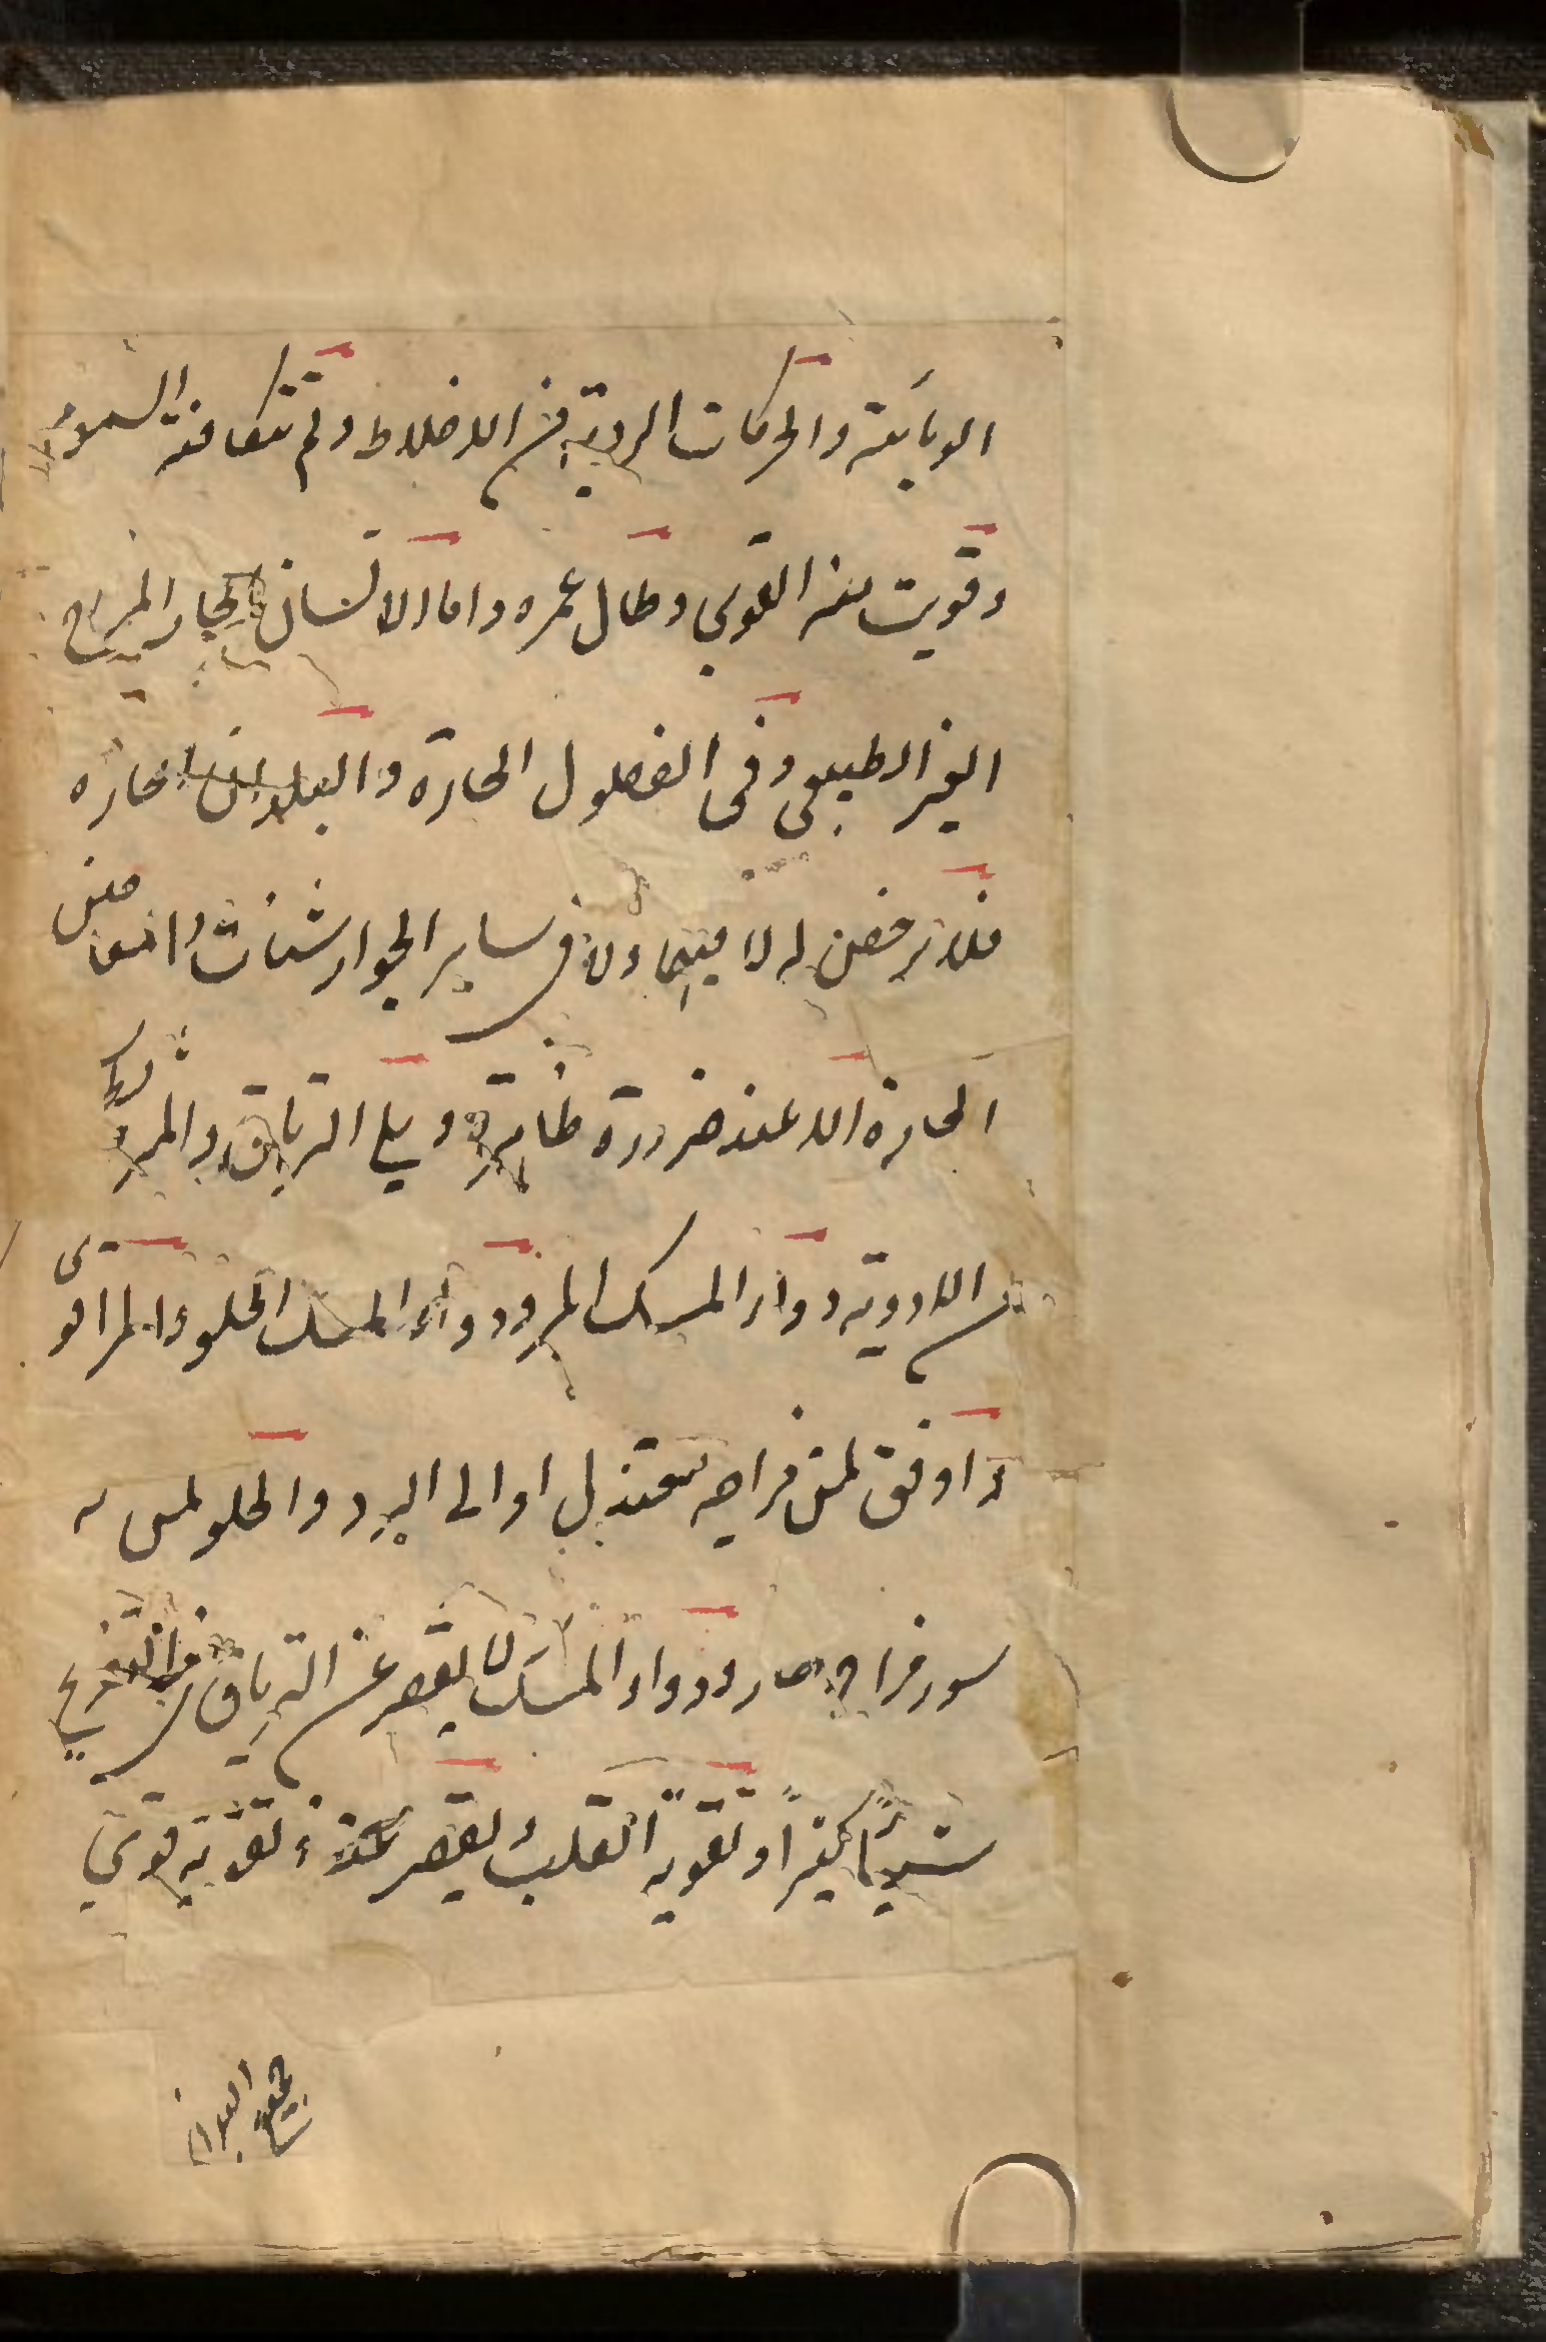 الوبائية والحركات الردية من الاخلاط ولم تتكافيه السموم
وقويت منه القوى وطال عمره واما الانسان الحار المزاج
الغير الطبيعى وفى الفصول الحارة والبلدان الحاره
فلا رخص له لا فيهما ولا فى ساير الجوارشنات والمعاجين
الحارة الا عند ضرورة ظاهرة ويلي الترياق والمثروديطوس
من الادوية دواء المسك المر ودواء المسك الحلو والمر اقوى
واوفق لمن مزاجه معتدل او الى البرد والحلو لمن له
سوء مزاج حار ودواء المسك لا يقصر عن الترياق فى التفريح
شيئًا كثيرًا وتقوية القلب ويقصر عنه فى تقوية قوى
جميع البدن